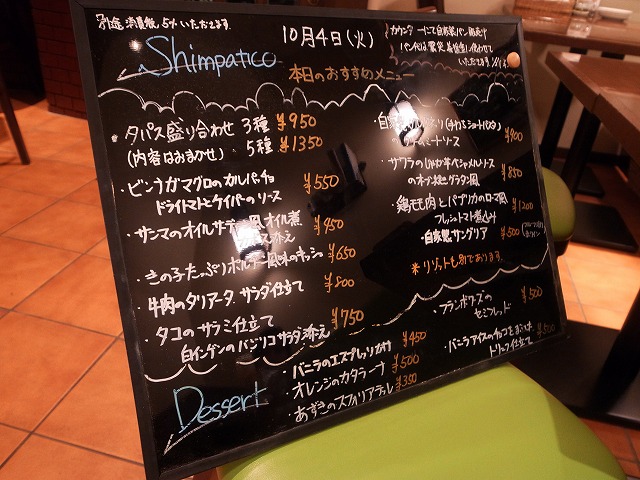 別途 消費税 5% いただきます。
10月4日(火)
カウンターにて自家製パン販売中
パン代は震災義援金に使わせて
いただきます
Shimpatico
本日のおすすめメニュー
タパス盛り合わせ 3種 ¥950
(内容はおまかせ) 5種 ¥1350
・ビンナガマグロのカルパッチョ
ドライトマトとケイパーのソース ¥550
・サンマのオイルサーディン風オイル煮
添え ¥950
・きの子たっぷりボルチーニ風味のキッシュ ¥650
・牛肉のタリアータ サラダ仕立て ¥800
・タコのサラミ仕立て
白インゲンのバジリコサラダ添え ¥750
ミートソース ¥900
・サワラのじゃが芋ベシャメルソース
のオーブン焼きグラタン風 ¥850
・鶏モモ肉とパプリカのローマ風
フレッシュトマト煮込み ¥1200
・自家製サングリア ¥500
*リゾットも別であります。
Dessert
・バニラのエスプレッソがけ ¥450
・オレンジのカタラーナ ¥500
・あずきのスフォリアテッレ ¥350
・フランボワーズの
セミフレッド ¥500
・バニラアイスのチョコをまとった
トリュフ仕立て ¥500